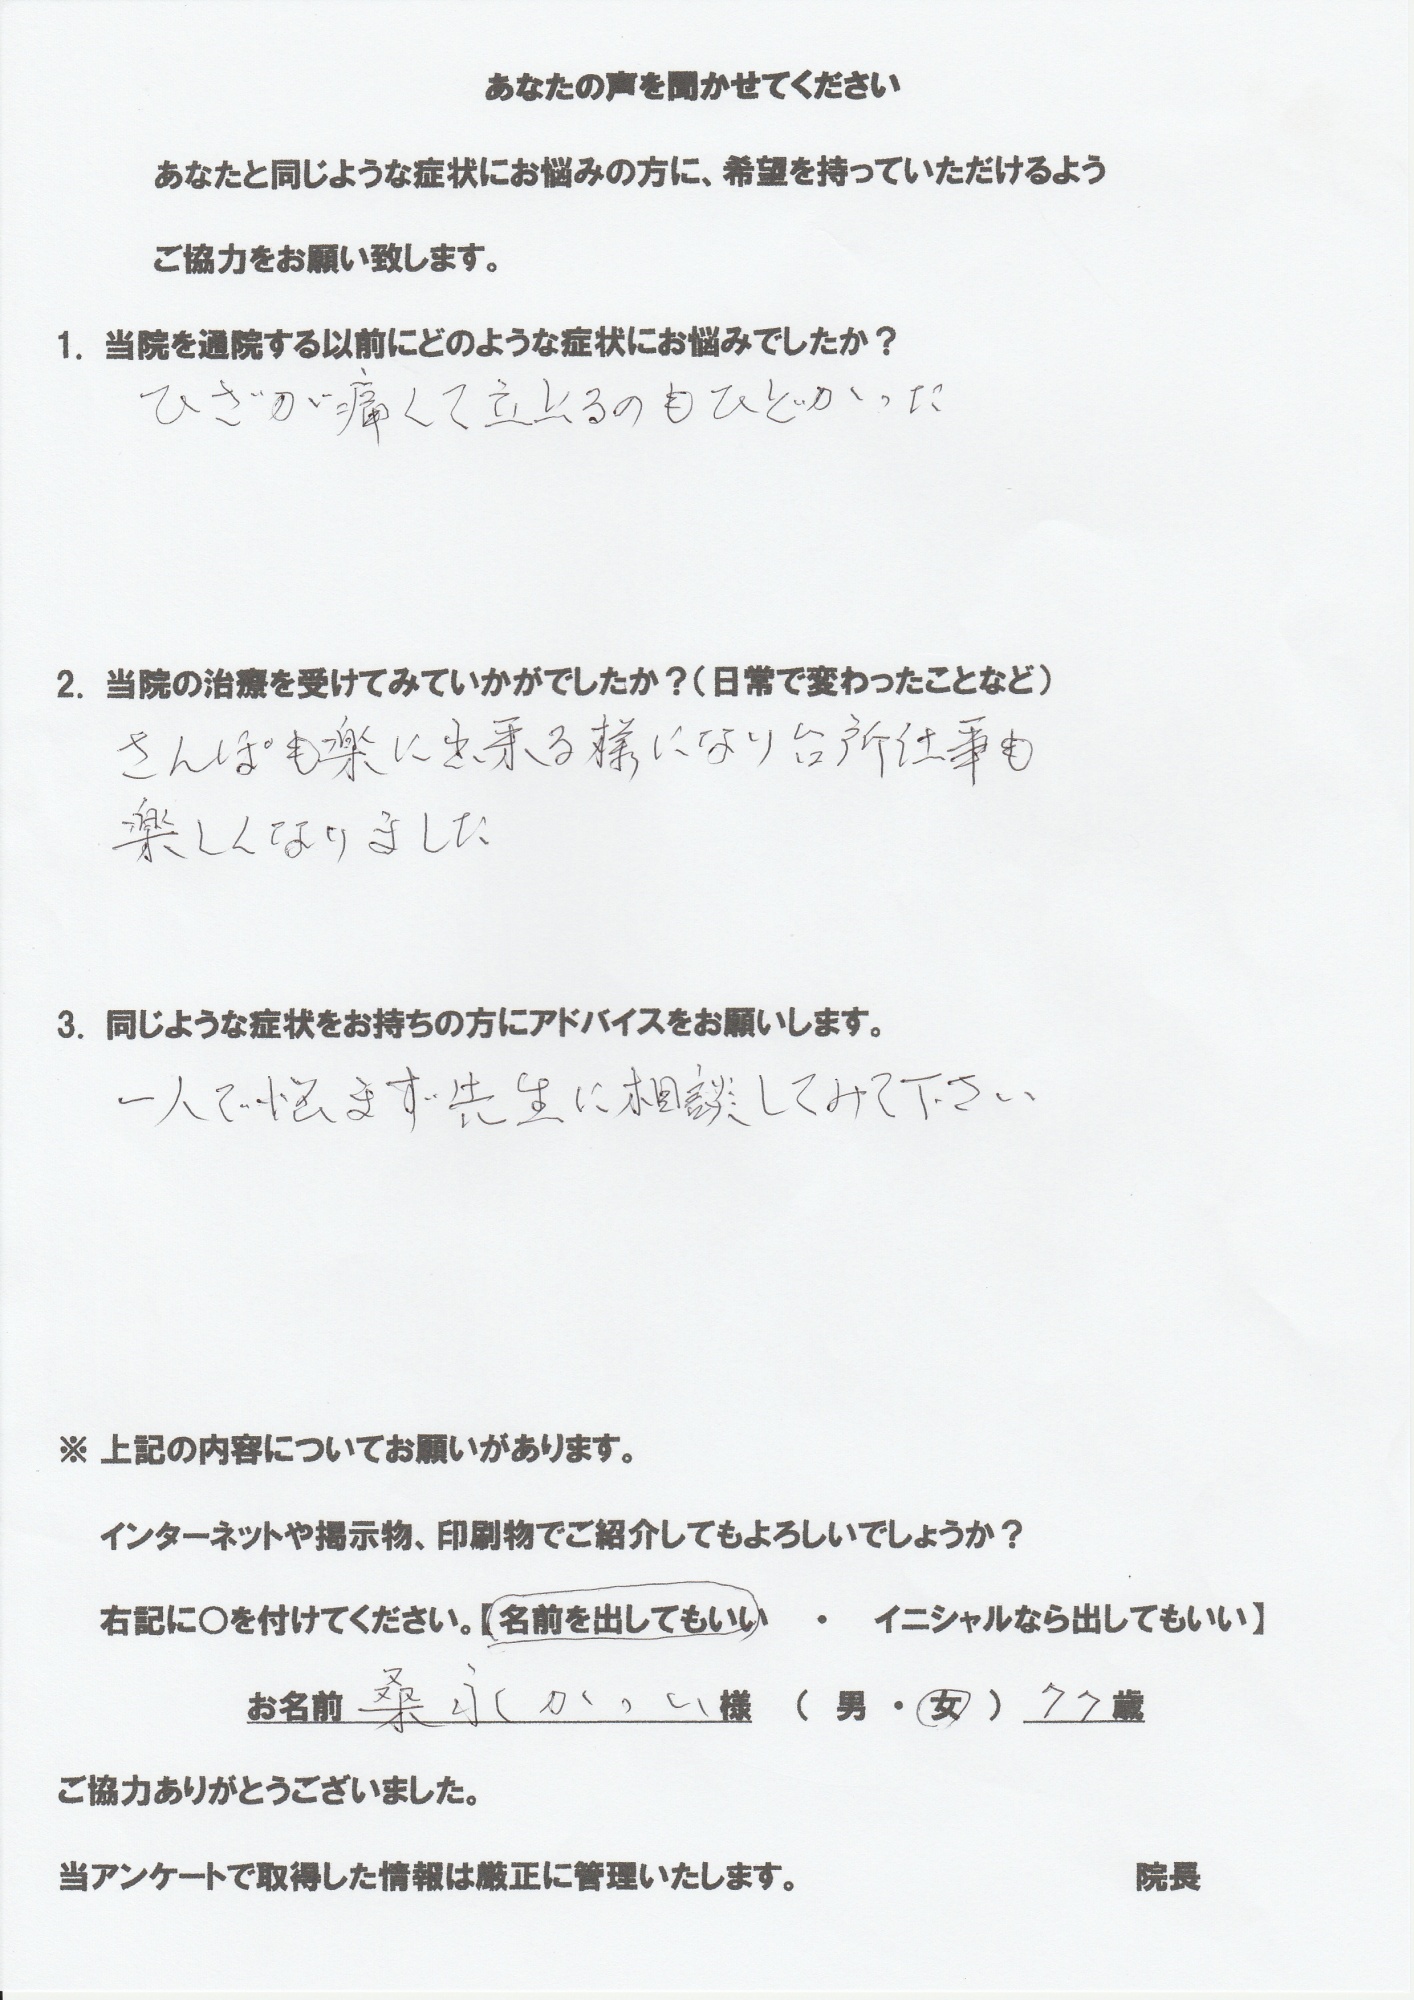 あなたの声を聞かせてください
あなたと同じような症状にお悩みの方に、希望を持っていただけるよう
ご協力をお願い致します。
1. 当院を通院する以前にどのような症状にお悩みでしたか？
ひざが痛くて立上るのもひどかった
2. 当院の治療を受けてみていかがでしたか？（日常で変わったことなど）
さんぽも楽に出来る様になり台所仕事も
楽しくなりました
3. 同じような症状をお持ちの方にアドバイスをお願いします。
一人で悩まず先生に相談してみて下さい
※ 上記の内容についてお願いがあります。
インターネットや掲示物、印刷物でご紹介してもよろしいでしょうか？
右記に〇を付けてください。【名前を出してもいい ・ イニシャルなら出してもいい】
お名前 桑永 様 （ 男 ・ 女 ） 77歳
ご協力ありがとうございました。
当アンケートで取得した情報は厳正に管理いたします。 院長